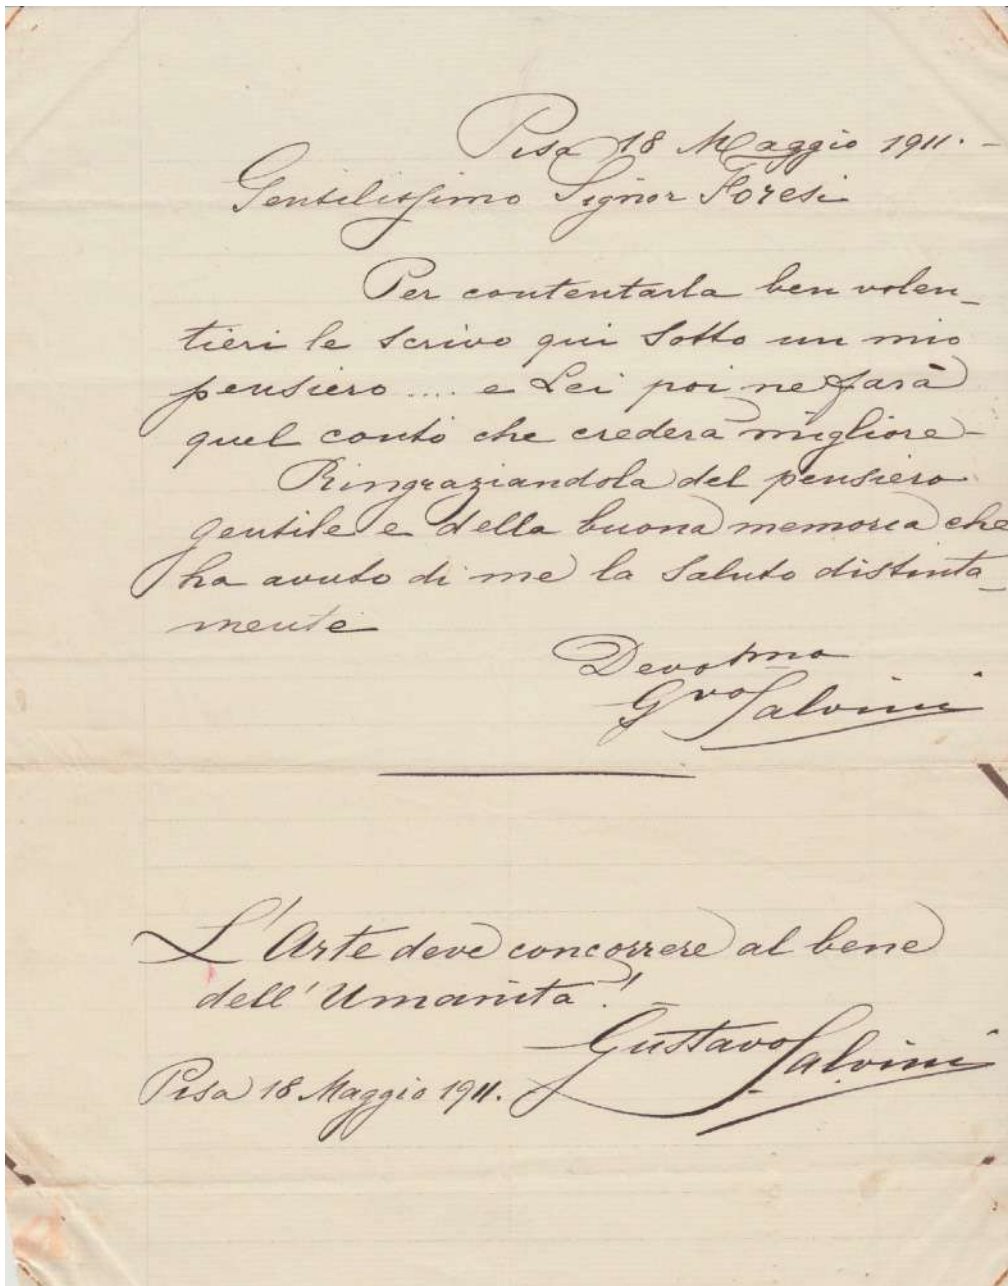 Pisa 18 Maggio 1911. -
Gentilissimo Signor Foresi
Per contentarla ben volen_
tieri le scrivo qui sotto un mio
pensiero .... e Lei poi ne farà
quel conto che crederà migliore -
Ringraziandola del pensiero
gentile e della buona memoria che
ha avuto di me la saluto distinta_
mente
Devotmo
Gvo Salvini
L'Arte deve concorrere al bene
dell'Umanità!
Gustavo Salvini
Pisa 18 Maggio 1911.